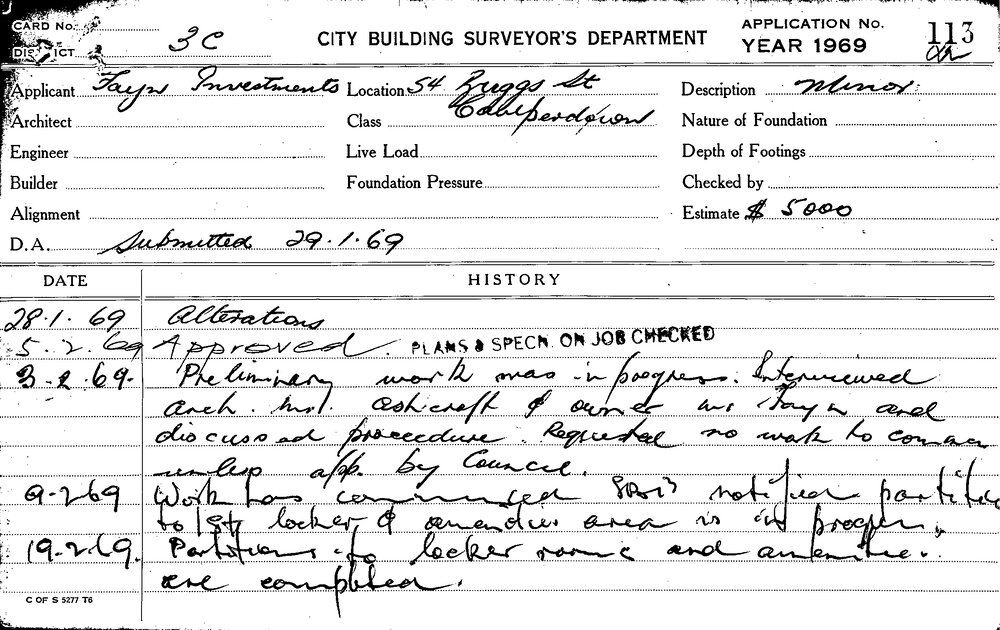 CARD No.
DISTRICT 3C
CITY BUILDING SURVEYOR'S DEPARTMENT
APPLICATION No. 113
YEAR 1969
Applicant Investments Location 54 Briggs St Description Minor
Architect Class Camperdown Nature of Foundation
Engineer Live Load Depth of Footings
Builder Foundation Pressure Checked by
Alignment Estimate $ 5000
D.A. Submitted 29.1.69
DATE HISTORY
28.1.69 Alterations
5.2.69 Approved. PLANS & SPECN. ON JOB CHECKED
3.2.69. Preliminary work was in progress. Interviewed
arch. Ashcroft & owner Mr and
discussed proceedure. Requested no work to
unless app. by Council.
9-2-69 Work has commenced notified
to locker & amenities area is in progress.
19.2.69. Partitions to locker rooms and amenities
are completed.
C OF S 5277 T6